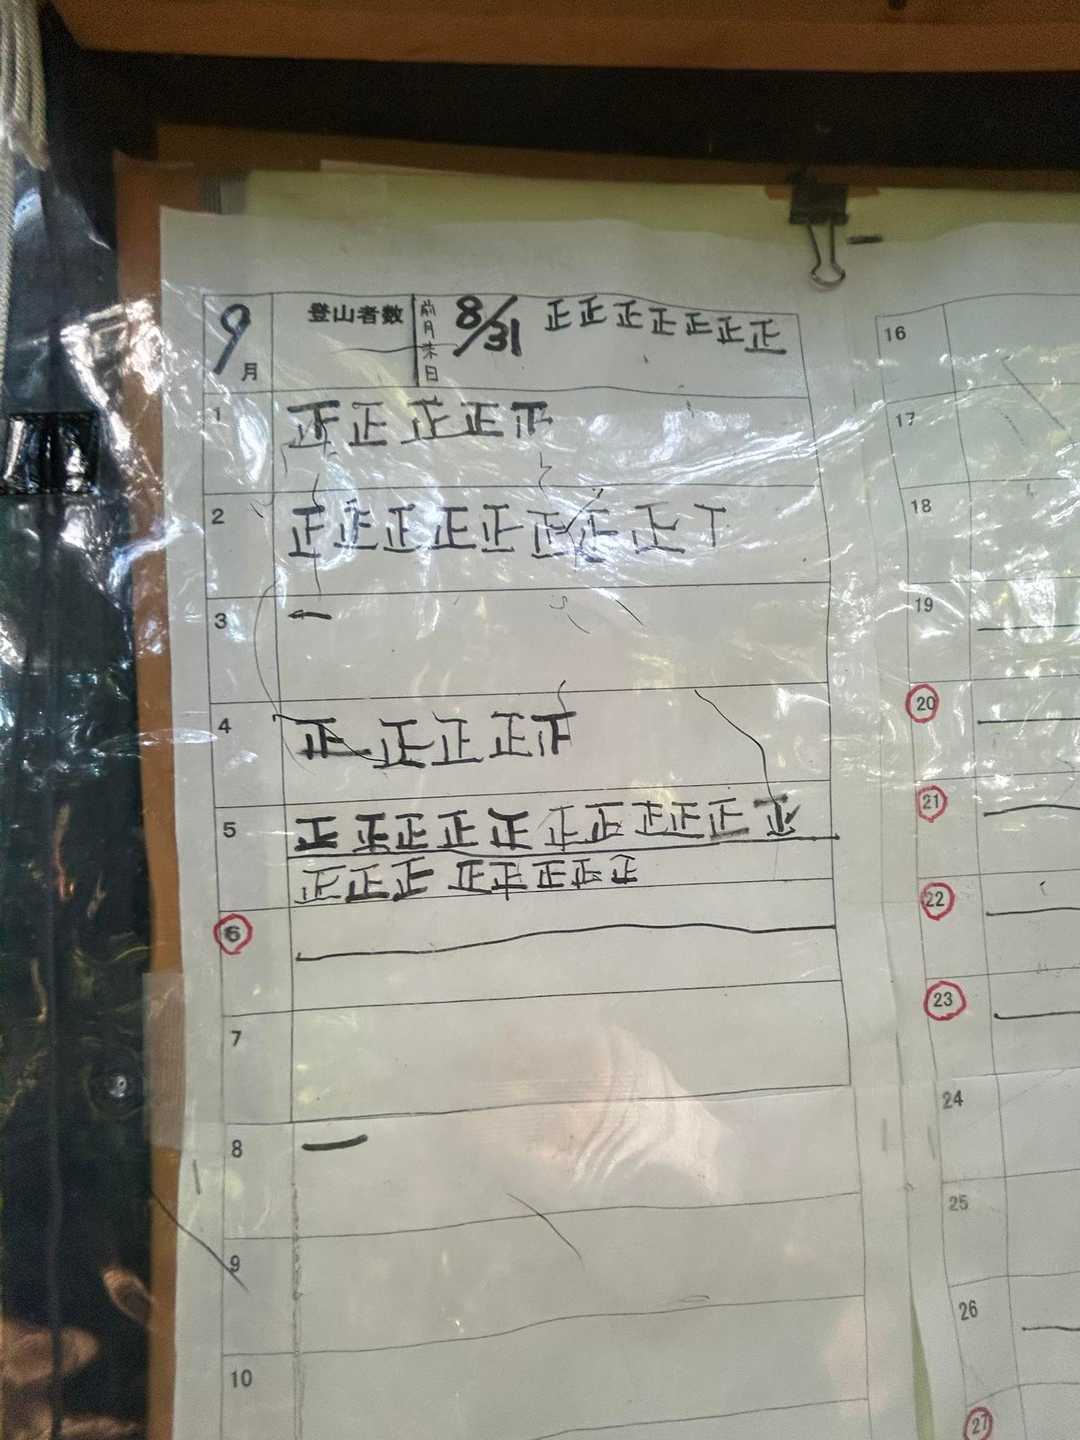 9月 登山者数 前月末日 8/31 正正正正正正正
1 正正正正正
2 正正正正正正正正T
3 一
4 正正正正正
5 正正正正正正正正正正正
正正正正正正正正
6
7
8 一
9
10
16
17
18
19
20
21
22
23
24
25
26
27